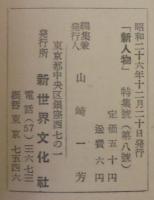 昭和二十六年十二月二十日発行
「新人物」 特集號(第八號)
定価五十円
送費六円
編集兼
発行人 山崎一芳
東京都中央区銀座西七の一
発行所 新世界文化社
電話(57)三六七三
振替東京七五四六